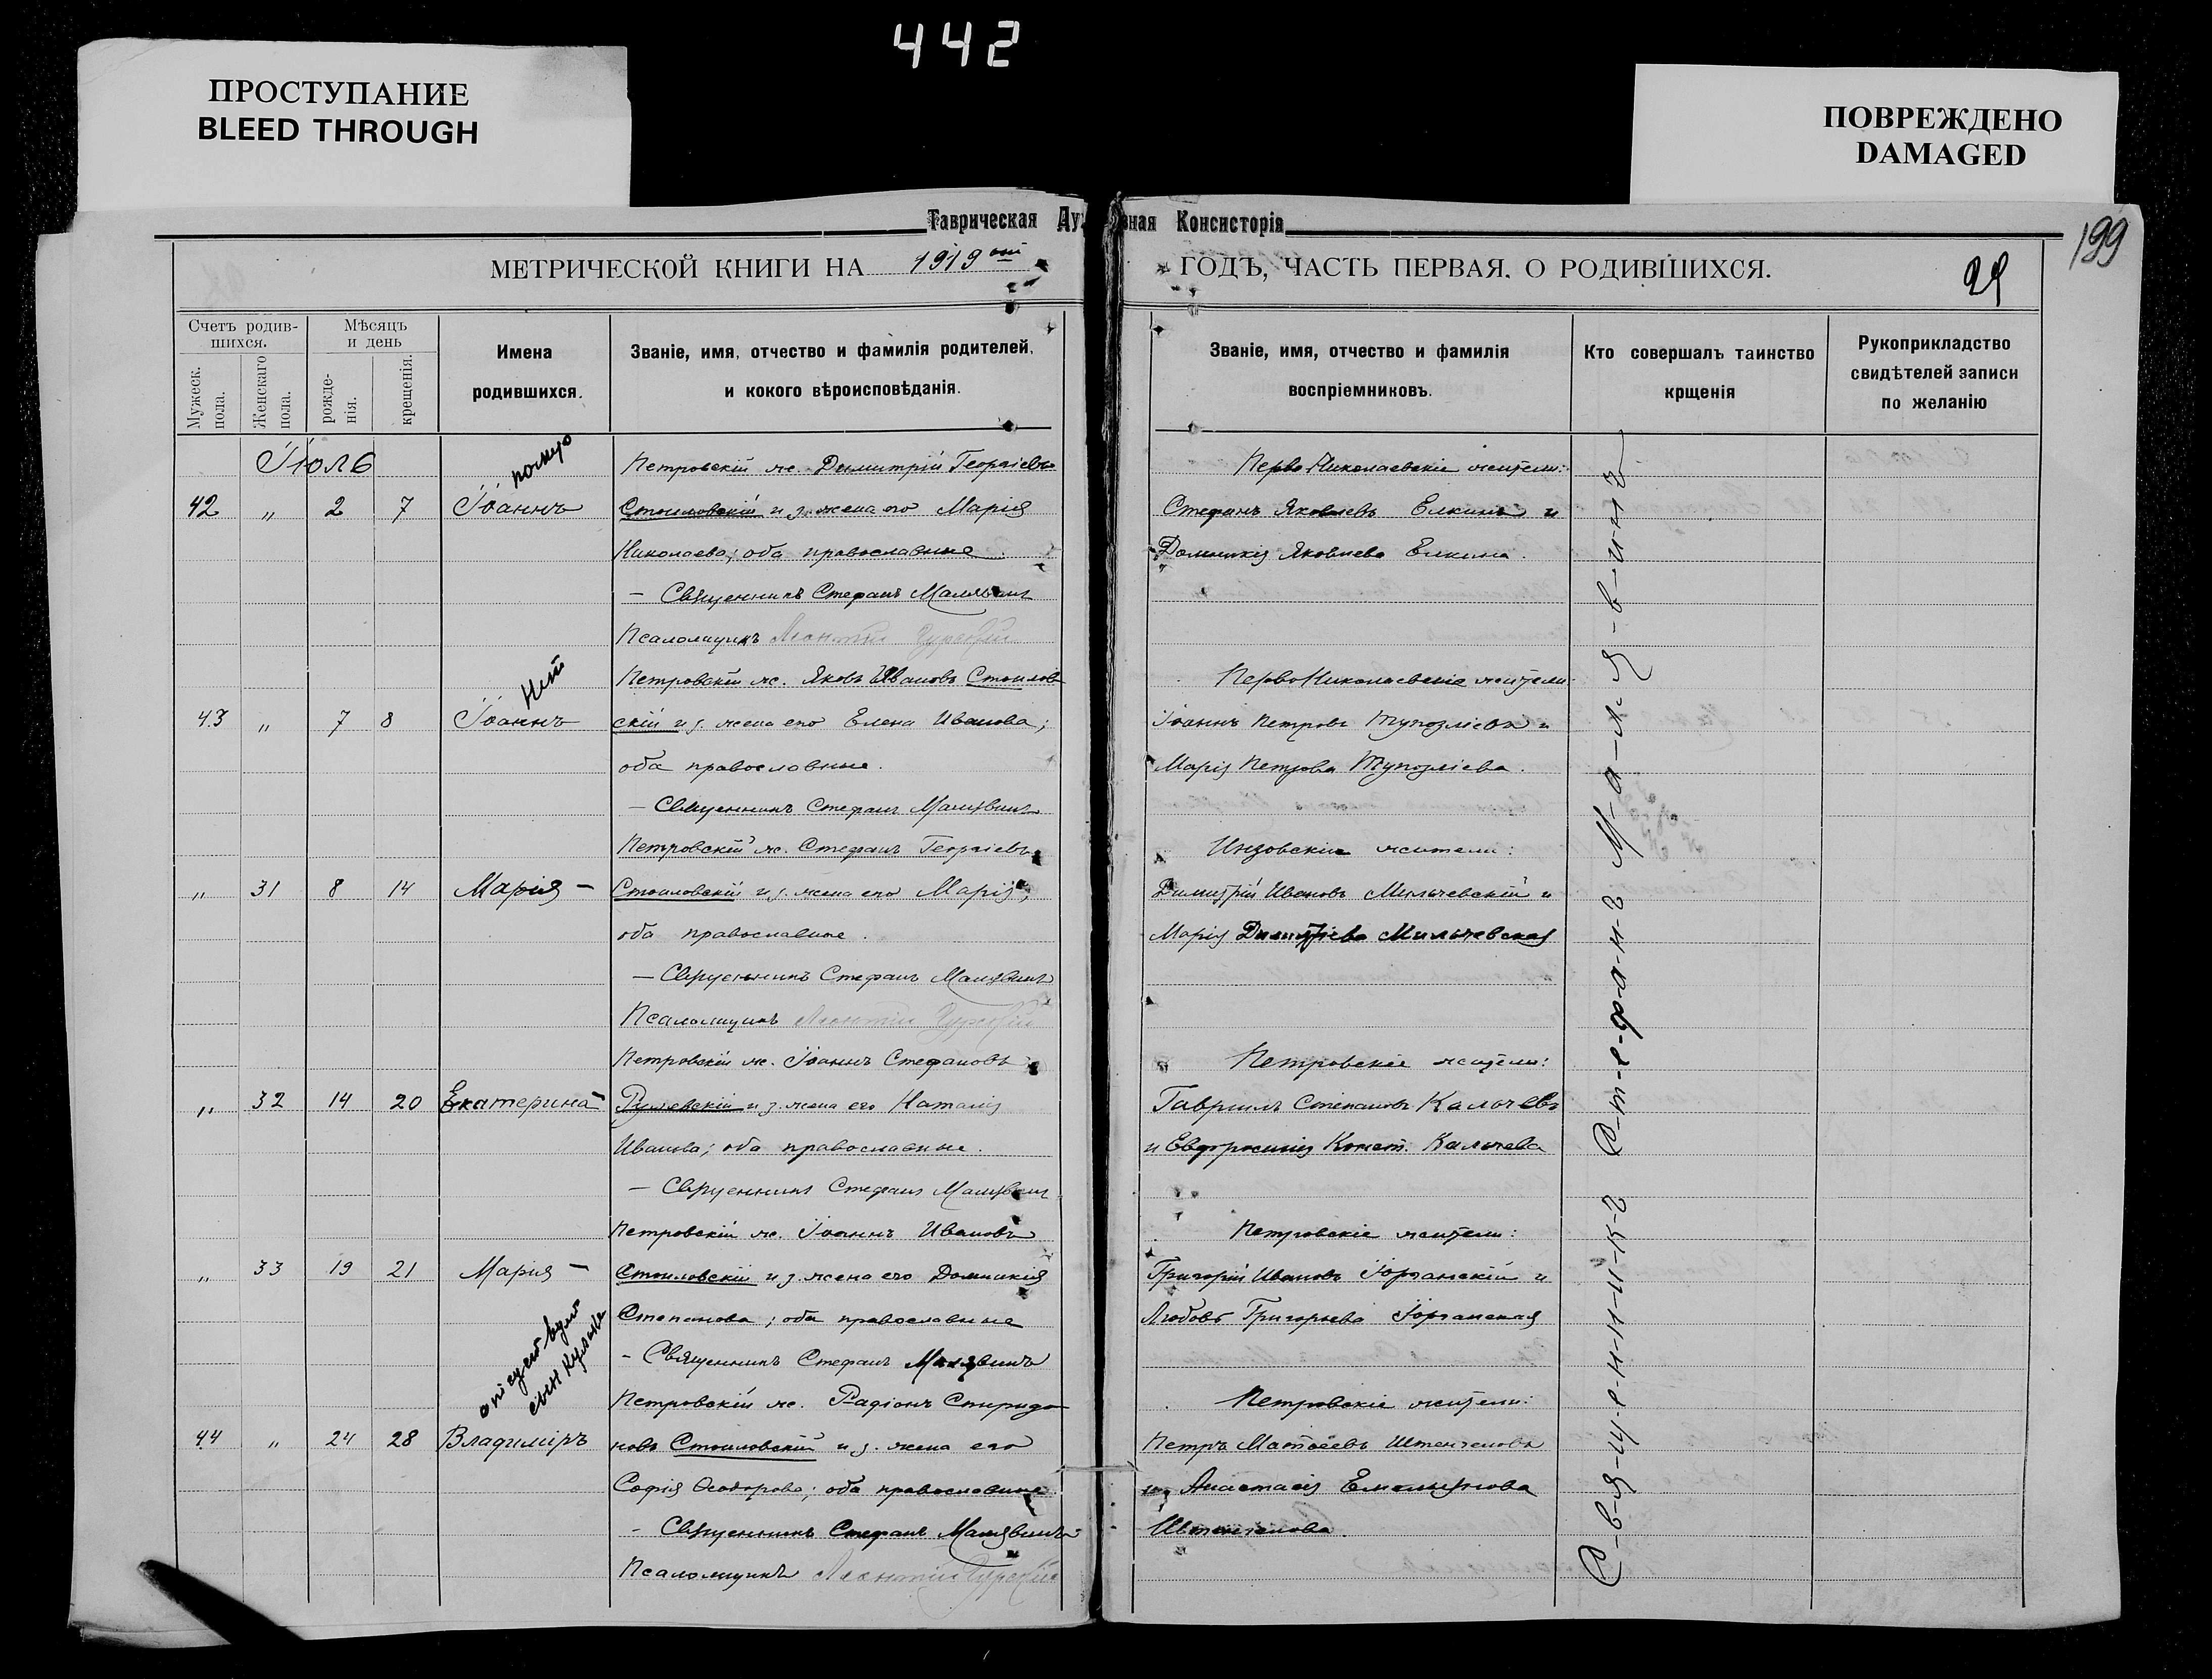 442
ПРОСТУПАНИЕ
BLEED THROUGH
ПОВРЕЖДЕНО
DAMAGED
Таврическая Ду
вная Консисторія
199
МЕТРИЧЕСКОЙ КНИГИ НА 1919 ый
ГОДЪ, ЧАСТЬ ПЕРВАЯ. О РОДИВШИХСЯ.
Счетъ родив-
шихся.
Мужеск.
пола.
Женскаго
пола.
Мѣсяцъ
и день
рожде-
нія.
крещенія.
Имена
родившихся.
Званіе, имя, отчество и фамилія родителей,
и кокого вѣроисповѣданія.
Званіе, имя, отчество и фамилія
воспріемниковъ.
Кто совершалъ таинство
крщенія
Рукоприкладство
свидѣтелей записи
по желанію
Іюль
42 " 2 7 Іоаннъ
Петровскій ж. Димитрій Георгіевъ
Стоиловскій и з. жена его Марія
Николаева; оба православные.
— Священникъ Стефанъ Малявинъ
Псаломщикъ Леонтій
Перво Николаевскіе жители:
Стефанъ Яковлевъ Елкинъ и
Домникія Яковлева Елкина.
43 " 7 8 Іоаннъ
Петровскій ж. Яковъ Ивановъ Стоилов
скій и з. жена его Елена Иванова;
оба православные.
— Священникъ Стефанъ Малявинъ
ПервоНиколаевскіе жители
Іоаннъ Петровъ Тупозліевъ и
Марія Петрова Тупозліева.
" 31 8 14 Марія —
Петровскій ж. Стефанъ Георгіевъ
Стоиловскій и з. жена его Марія;
оба православные.
— Священникъ Стефанъ Малявинъ
Псаломщикъ Леонтій
Инзовскіе жители:
Димитрій Ивановъ Мильчевскій и
Марія Димитріева Мильчевская
" 32 14 20 Екатерина —
Петровскій ж. Іоаннъ Стефановъ
и з. жена его Наталія
Иванова; оба православные.
— Священникъ Стефанъ Малявинъ
Петровскіе жители:
Гавріилъ Степановъ Кальчевъ
и Евфросинія Конст. Кальчева
" 33 19 21 Мария —
Петровскій ж. Іоаннъ Ивановъ
Стоиловскій и з. жена его Домникія
Степанова; оба православные
- Священникъ Стефанъ Малявинъ
Петровскіе жители:
Григорій Ивановъ Іорганскій и
Любовь Григорьева Іорганская
44 " 24 28 Владиміръ
Петровскій ж. Радіонъ Спиридо
новъ Стоиловскій и з. жена его
Софія Ѳеодорова; оба православные
- Священникъ Стефанъ Малявинъ
Псаломщикъ Леонтій
Петровскіе жители:
Петръ Матѳеевъ Штенгеловъ
и Анастасія Емельянова
Штенгелова.
С-в-я-щ-е-н-н-и-к-ъ С-т-е-ф-а-н-ъ М-а-л-я-в-и-н-ъ